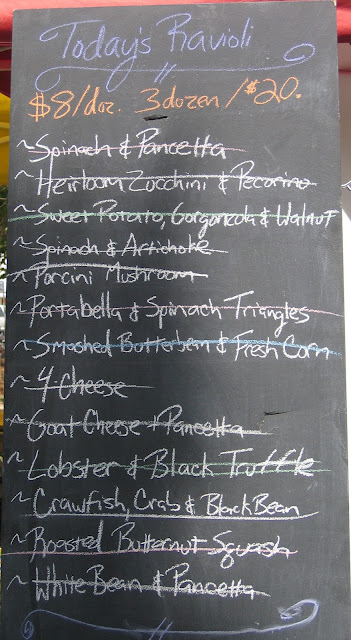 Today's Ravioli
$8/doz. 3 dozen/$20.
~Spinach & Pancetta
~Heirloom Zucchini & Pecorino
~Sweet Potato, Gorgonzola & Walnut
~Spinach & Artichoke
~Porcini Mushroom
~Portabella & Spinach Triangles
~Smashed Butterbean & Fresh Corn
~4-Cheese
~Goat Cheese & Pancetta
~Lobster & Black Truffle
~Crawfish, Crab & Black Bean
~Roasted Butternut Squash
~White Bean & Pancetta